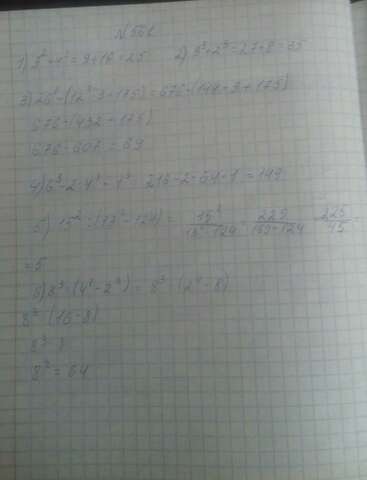 № 551
1) 3² + 4² = 9 + 16 = 25 2) 3³ + 2³ = 27 + 8 = 35
3) 26² - (12² · 3 + 175) = 676 - (144 · 3 + 175)
676 - (432 + 175)
676 - 607 = 69
4) 6³ - 2 · 4³ - 1³ = 216 - 2 · 64 - 1 = 149
5) 15² : (13² - 124) = 15² / 13² - 124 = 225 / 169 - 124 = 225 / 45 =
= 5
6) 8³ : (4² - 2³) = 8³ : (2⁴ - 8)
8³ (16 - 8)
8³
8² = 64